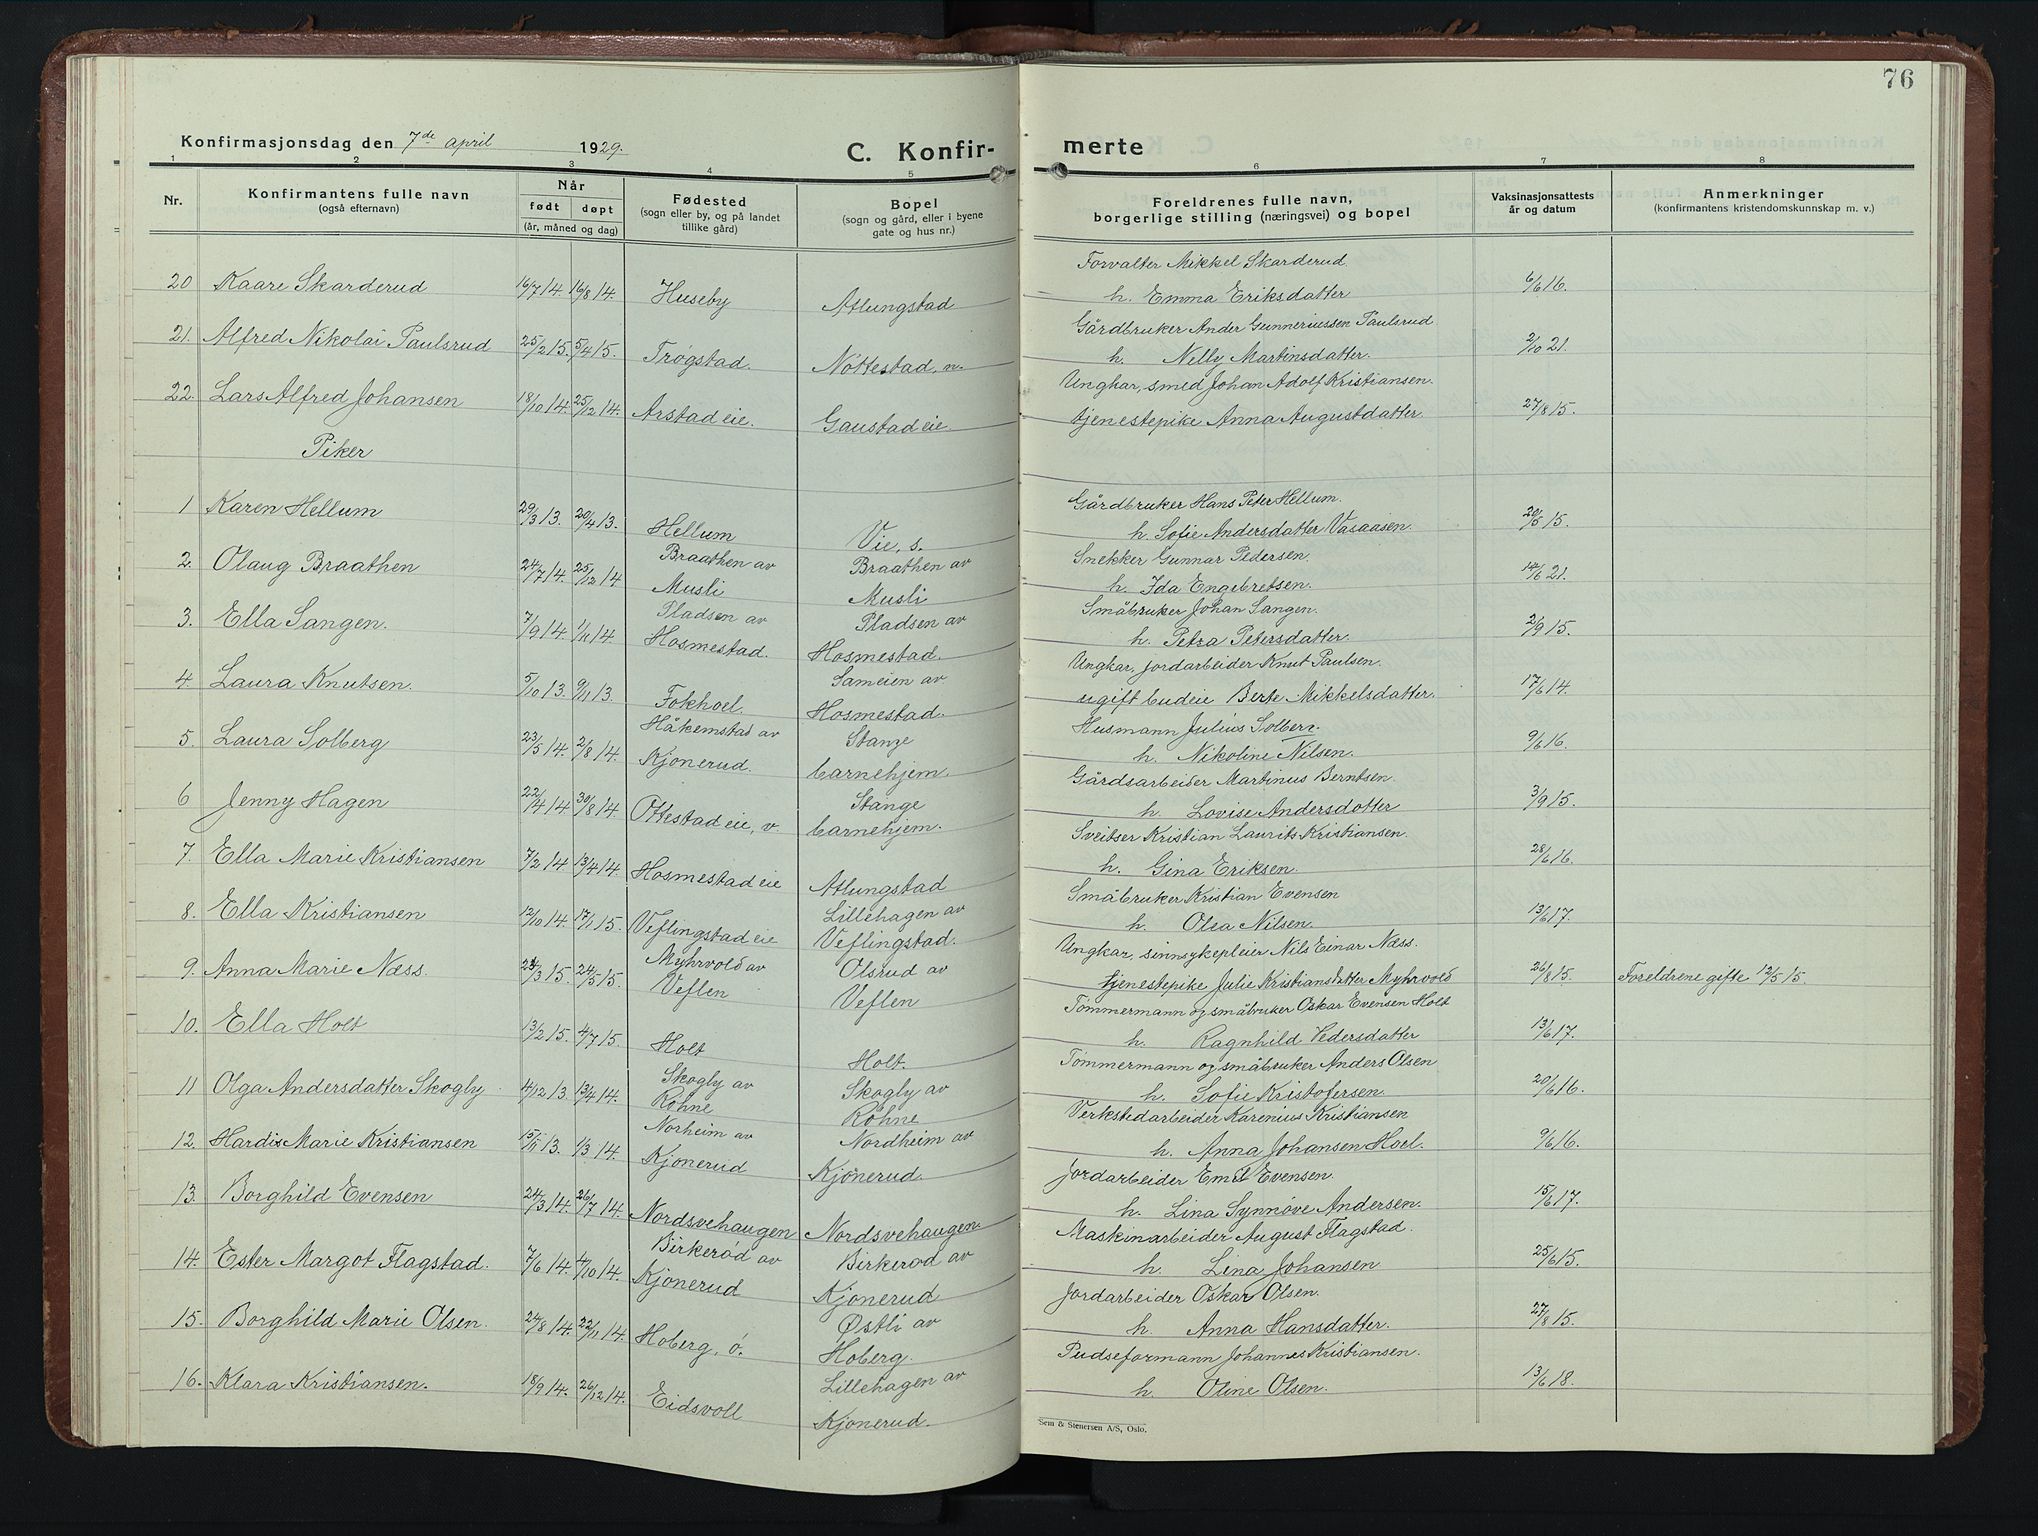 76
Konfirmasjonsdag den 7de april 1929.
C. Konfir-
merte
1 2 3 4 5 6 7 8
Nr.
Konfirmantens fulle navn
(også efternavn)
Når
født døpt
(år, måned og dag)
Fødested
(sogn eller by, og på landet
tillike gård)
Bopel
(sogn og gård, eller i byene
gate og hus nr.)
Foreldrenes fulle navn,
borgerlige stilling (næringsvei) og bopel
Vaksinasjonsattests
år og datum
Anmerkninger
(konfirmantens kristendomskunnskap m. v.)
20 Kaare Skarderud 16/7 14. 16/8 14. Huseby Atlungstad Forvalter Mikkel Skarderud. 6/6 16.
h. Emma Eriksdatter
21. Alfred Nikolai Paulsrud 25/2 15. 5/4 15. Trøgstad. Nottestad, n. Gårdbruker Ander Gunneriussen Paulsrud 2/10 21.
h. Nelly Martinsdatter.
22. Lars Alfred Johansen 18/10 14. 25/12 14. Arstad eie. Gaustad eie. Ungkar, smed Johan Adolf Kristiansen. 27/8 15.
tjenestepike Anna Augustdatter
Piker
1 Karen Hellum 29/3 13. 20/4 13. Hellum Vie, s. Gårdbruker Hans Peter Hellum. 20/5 15.
h. Sofie Andersdatter Vasaasen.
2. Olaug Braathen 24/7 14. 25/12 14 Braathen av Musli Braathen av Musli Snekker Gunnar Pedersen. 14/6 21.
h. Ida Engebretsen.
3. Ella Sangen. 7/9 14. 1/11 14. Pladsen av Hosmestad. Pladsen av Hosmestad. Småbruker Johan Sangen. 2/9 15.
h. Petra Petersdatter.
4. Laura Knutsen. 5/10 13. 9/11 13. Fokhoel. Sameien av Hosmestad. Ungkar, jordarbeider Knut Paulsen. 17/6 14.
ugift budeie Berte Mikkelsdatter.
5. Laura Solberg 23/5 14. 2/8 14. Håkemstad av Kjonerud. Stange barnehjem. Husmann Julius Solberg. 9/6 16.
h. Nikoline Nilsen.
6 Jenny Hagen 22/4 14. 30/8 14. Ottestad eie, v. Stange barnehjem. Gårdsarbeider Martinus Berntsen. 3/9 15.
h. Lovise Andersdatter
7. Ella Marie Kristiansen 7/2 14. 13/4 14. Hosmestad eie Atlungstad Sveitser Kristian Laurits Kristiansen. 28/6 16.
h. Gina Eriksen.
8. Ella Kristiansen 12/10 14. 17/1 15. Veflingstad eie Lillehagen av Veflingstad. Småbruker Kristian Evensen 13/6 17.
h. Olea Nilsen.
9. Anna Marie Næss. 24/3 15. 24/5 15. Myhrvold av Veflen Olsrud av Veflen Ungkar, sinnsykepleier Nils Einar Næss. 26/8 15. Foreldrene gifte 12/5 15.
tjenestepike Julie Kristiansdatter Myhrvold
10. Ella Holt 13/2 15. 4/7 15. Holt Holt. Tømmermann og småbruker Oskar Evensen Holt 13/6 17.
h. Ragnhild Pedersdatter
11 Olga Andersdatter Skogly 4/12 13. 13/4 14. Skogly av Røhne Skogly av Røhne Tømmermann og småbruker Anders Olsen 20/6 16.
h. Sofie Kristofersen.
12. Hardis Marie Kristiansen 15/11 13. 1/3 14. Norheim av Kjonerud Nordheim av Kjonerud. Verkstedarbeider Karenius Kristiansen 9/6 16.
h. Anna Johansen Hoel.
13. Borghild Evensen 24/3 14. 26/7 14. Nordsvehaugen Nordsvehaugen. Jordarbeider Emil Evensen. 15/6 17.
h. Lina Synnøve Andersen.
14. Ester Margot Flagstad. 7/6 14. 4/10 14. Birkerød av Kjonerud Birkerød av Kjonerud Maskinarbeider August Flagstad. 25/6 15.
h. Lina Johansen
15. Borghild Marie Olsen. 24/8 14. 22/11 14. Hoberg, ø. Østli av Hoberg. Jordarbeider Oskar Olsen. 27/8 15.
h. Anna Hansdatter.
16. Klara Kristiansen. 18/9 14. 26/12 14. Eidsvoll Lillehagen av Kjonerud. Pudseformann Johannes Kristiansen. 13/6 18.
h. Oline Olsen.
Sem & Stenersen A/S, Oslo.